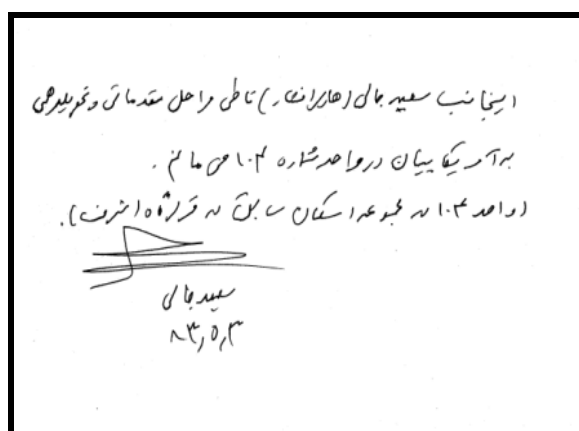 اینجانب سعید جمالی (هادی افشار) تا طی مراحل مقدماتی و تحویلدهی
به آمریکاییان در واحد شماره ۱۰۴ می مانم.
(واحد ۱۰۴ مجموعه اسکان سابق قرارگاه اشرف).
سعید جمالی
۸۳,۵,۳